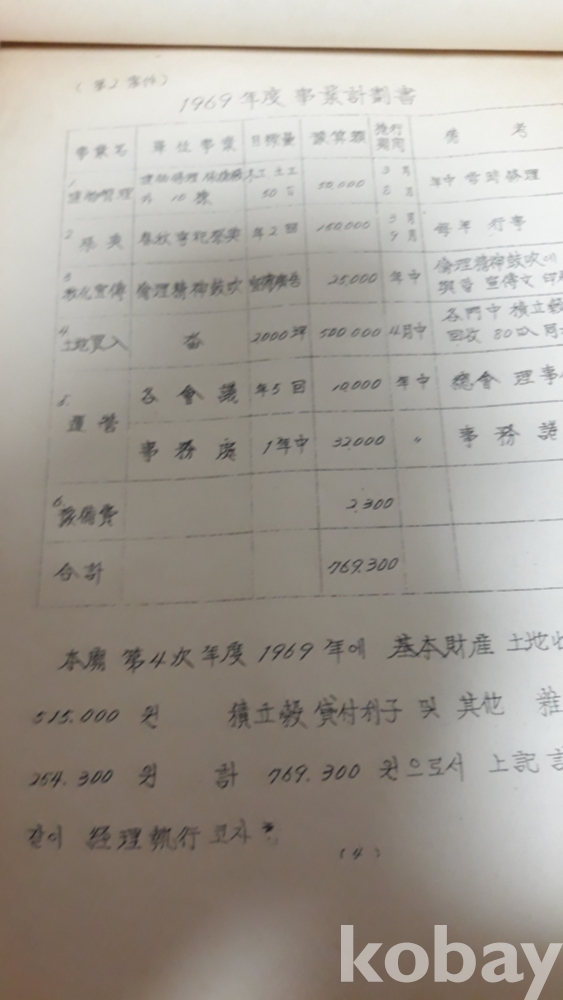 (第2案件)
1969 年度 事業計劃書
事業名 單位事業 目標量 豫算額 施行期間 備 考
1 建物管理 外 10 棟 50 50,000 3月 年中 常時修理
2 祭典 春秋享祀祭典 年2回 150,000 3月 9月 每年 行事
3 敎化宣傳 倫理精神鼓吹 25,000 年中 倫理精神鼓吹에 宣傳文 印刷
4 土地買入 畓 2000坪 500,000 4月中 各門中 積立穀 回收 80
5 運營 各 會 議 年5回 10,000 年中 總會 理事
事務 1年中 32000 〃 事務
6 豫備費 2,300
合計 769.300
第4次年度 1969年에 基本財産 土地
515.000 원 積立穀 貸付利子 및 其他 雜
254.300 원 計 769.300 원으로서 上記
같이 経理執行코자
(4)
kobay